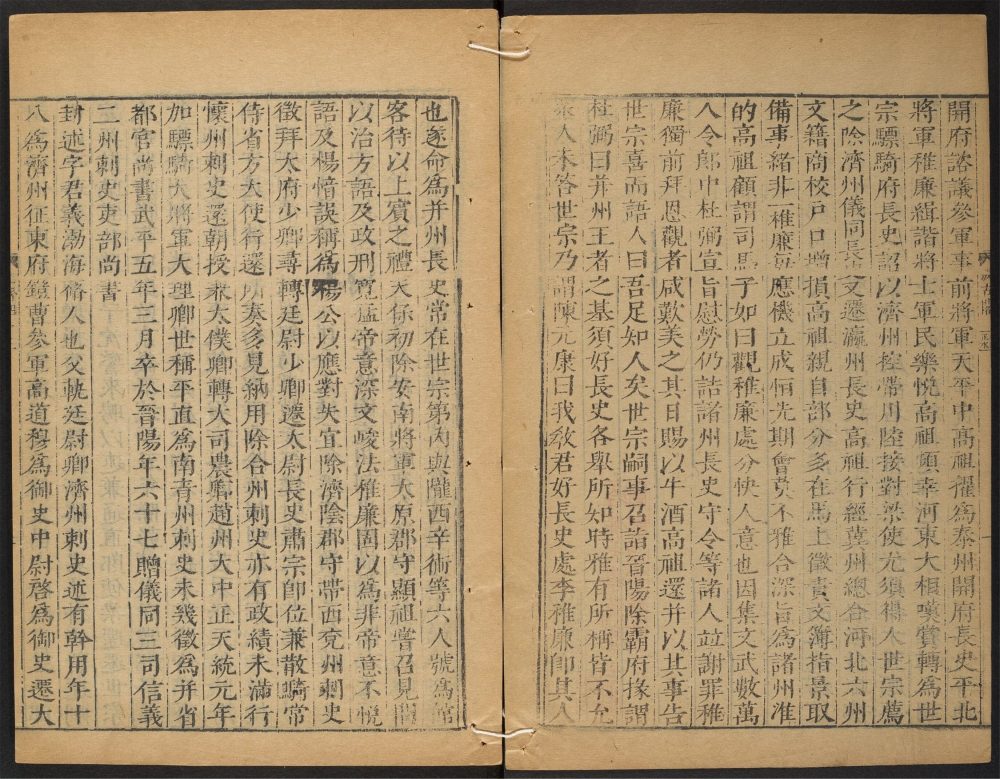 開府諮議參軍事前將軍天平中高祖擢爲泰州開府長史平北
將軍稚廉緝諧將士軍民樂悅高祖頻幸河東大相嗟賞轉爲世
宗驃騎府長史詔以濟州控帶川陸接對梁使尤須得人世宗薦
之除濟州儀同長史又遷瀛州長史高祖行經冀州總合河北六州
文籍商校戶口增損高祖親自部分多在馬上徵責文簿指景取
備事緒非一稚廉每應機立成恒先期會莫不雅合深旨爲諸州准
的高祖顧謂司馬子如曰觀稚廉處分快人意也因集文武數萬
人令郎中杜弼宣旨慰勞仍詰諸州長史守令等諸人竝謝罪稚
廉獨前拜恩觀者咸歎美之其日賜以牛酒高祖還并以其事告
世宗喜而語人曰吾足知人矣世宗嗣事召詣晉陽除霸府掾謂
杜弼曰并州王者之基須好長史各舉所知時雅有所稱皆不允
衆人未答世宗乃謂陳元康曰我敎君好長史處李稚廉卽其人
也遂命爲并州長史常在世宗第內與隴西辛術等六人號爲館
客待以上賓之禮天保初除安南將軍太原郡守顯祖嘗召見問
以治方語及政刑寬猛帝意深文峻法稚廉固以爲非帝意不悅
語及楊愔誤稱爲楊公以應對失宜除濟陰郡守帶西兗州刺史
徵拜太府少卿尋轉廷尉少卿遷太尉長史肅宗卽位兼散騎常
侍省方大使行還所奏多見納用除合州刺史亦有政績未滿行
懷州刺史還朝授兼太僕卿轉大司農卿趙州大中正天統元年
加驃騎大將軍大理卿世稱平直爲南青州刺史未幾徵爲并省
都官尚書武平五年三月卒於晉陽年六十七贈儀同三司信義
二州刺史吏部尚書
封述字君義渤海蓨人也父軌廷尉卿濟州刺史述有幹用年十
八爲濟州征東府鎧曹參軍高道穆爲御史中尉啓爲御史遷大